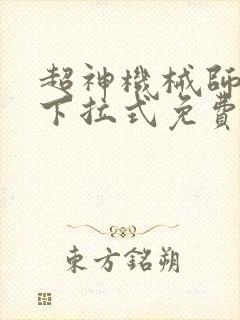 超神機械師
下拉式免費
東方銘朔